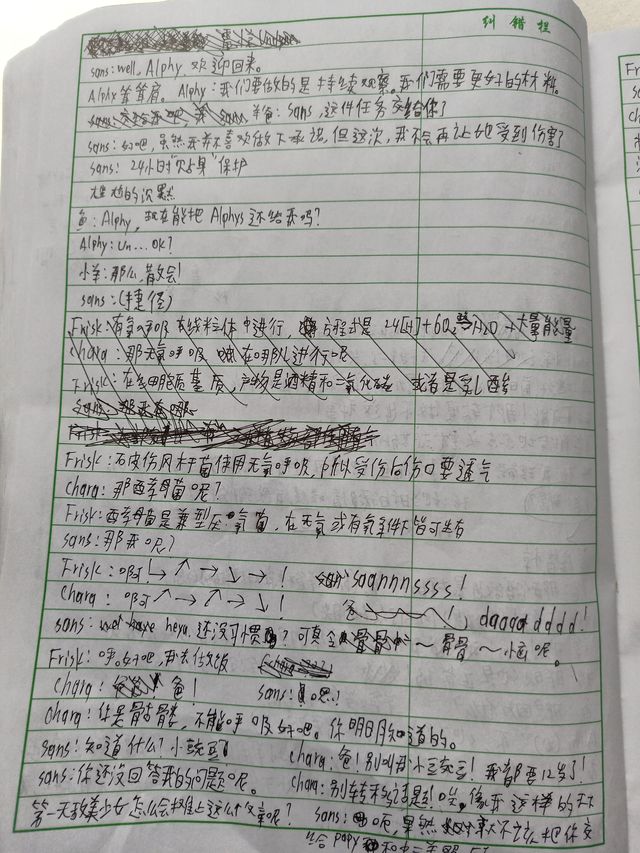 纠错栏
sans: well, Alphy, 欢迎回来。
Alphy 耸耸肩。 Alphy: 我们要做的是持续观察。我们需要更好的材料。
羊爸: sans, 这件任务交给你了
sans: 好吧, 虽然我并不喜欢做下承诺, 但这次, 我不会再让她受到伤害了
sans: 24小时“贴身”保护
尴尬的沉默
鱼: Alphy, 现在能把 Alphys 还给我吗?
Alphy: Un... OK?
小羊: 那么, 散会!
sans: (捷径)
Frisk: 有氧呼吸 在线粒体中进行, 方程式是 24[H]+6O₂ 12H₂O + 大量能量
Chara: 那无氧呼吸 在哪儿进行呢
Frisk: 在细胞质基质, 产物是酒精和二氧化碳 或者是乳酸
Frisk: 破伤风杆菌使用无氧呼吸, 所以受伤后伤口要透气
Chara: 那酵母菌呢?
Frisk: 酵母菌是兼型厌氧菌, 在无氧或有氧条件下皆可生存
sans: 那我呢?
Frisk: 啊! → ↗ → ↘ → ! saannnssss!
Chara: 啊 ↗ → ↗ → ↘ ! 爸 ! daaaadddd!
sans: heya. 还没习惯? 可真 ~ 骨骨 ~ 小 呢。
Frisk: 呼, 好吧, 我去做饭
Chara: 爸! sans: 呃..?
Chara: 你是骷髅, 不能呼吸好吧。你明明知道的。
sans: 知道什么? 小豌豆? Chara: 爸! 别叫我小豌豆! 我都要12岁了!
sans: 你还没回答我的问题呢。 Chara: 别转移话题! 哎, 像我这样的天下
第一无敌美少女怎么会摊上这么个 呢? sans: 呃, 果然 不应该把你交
给 papy 和